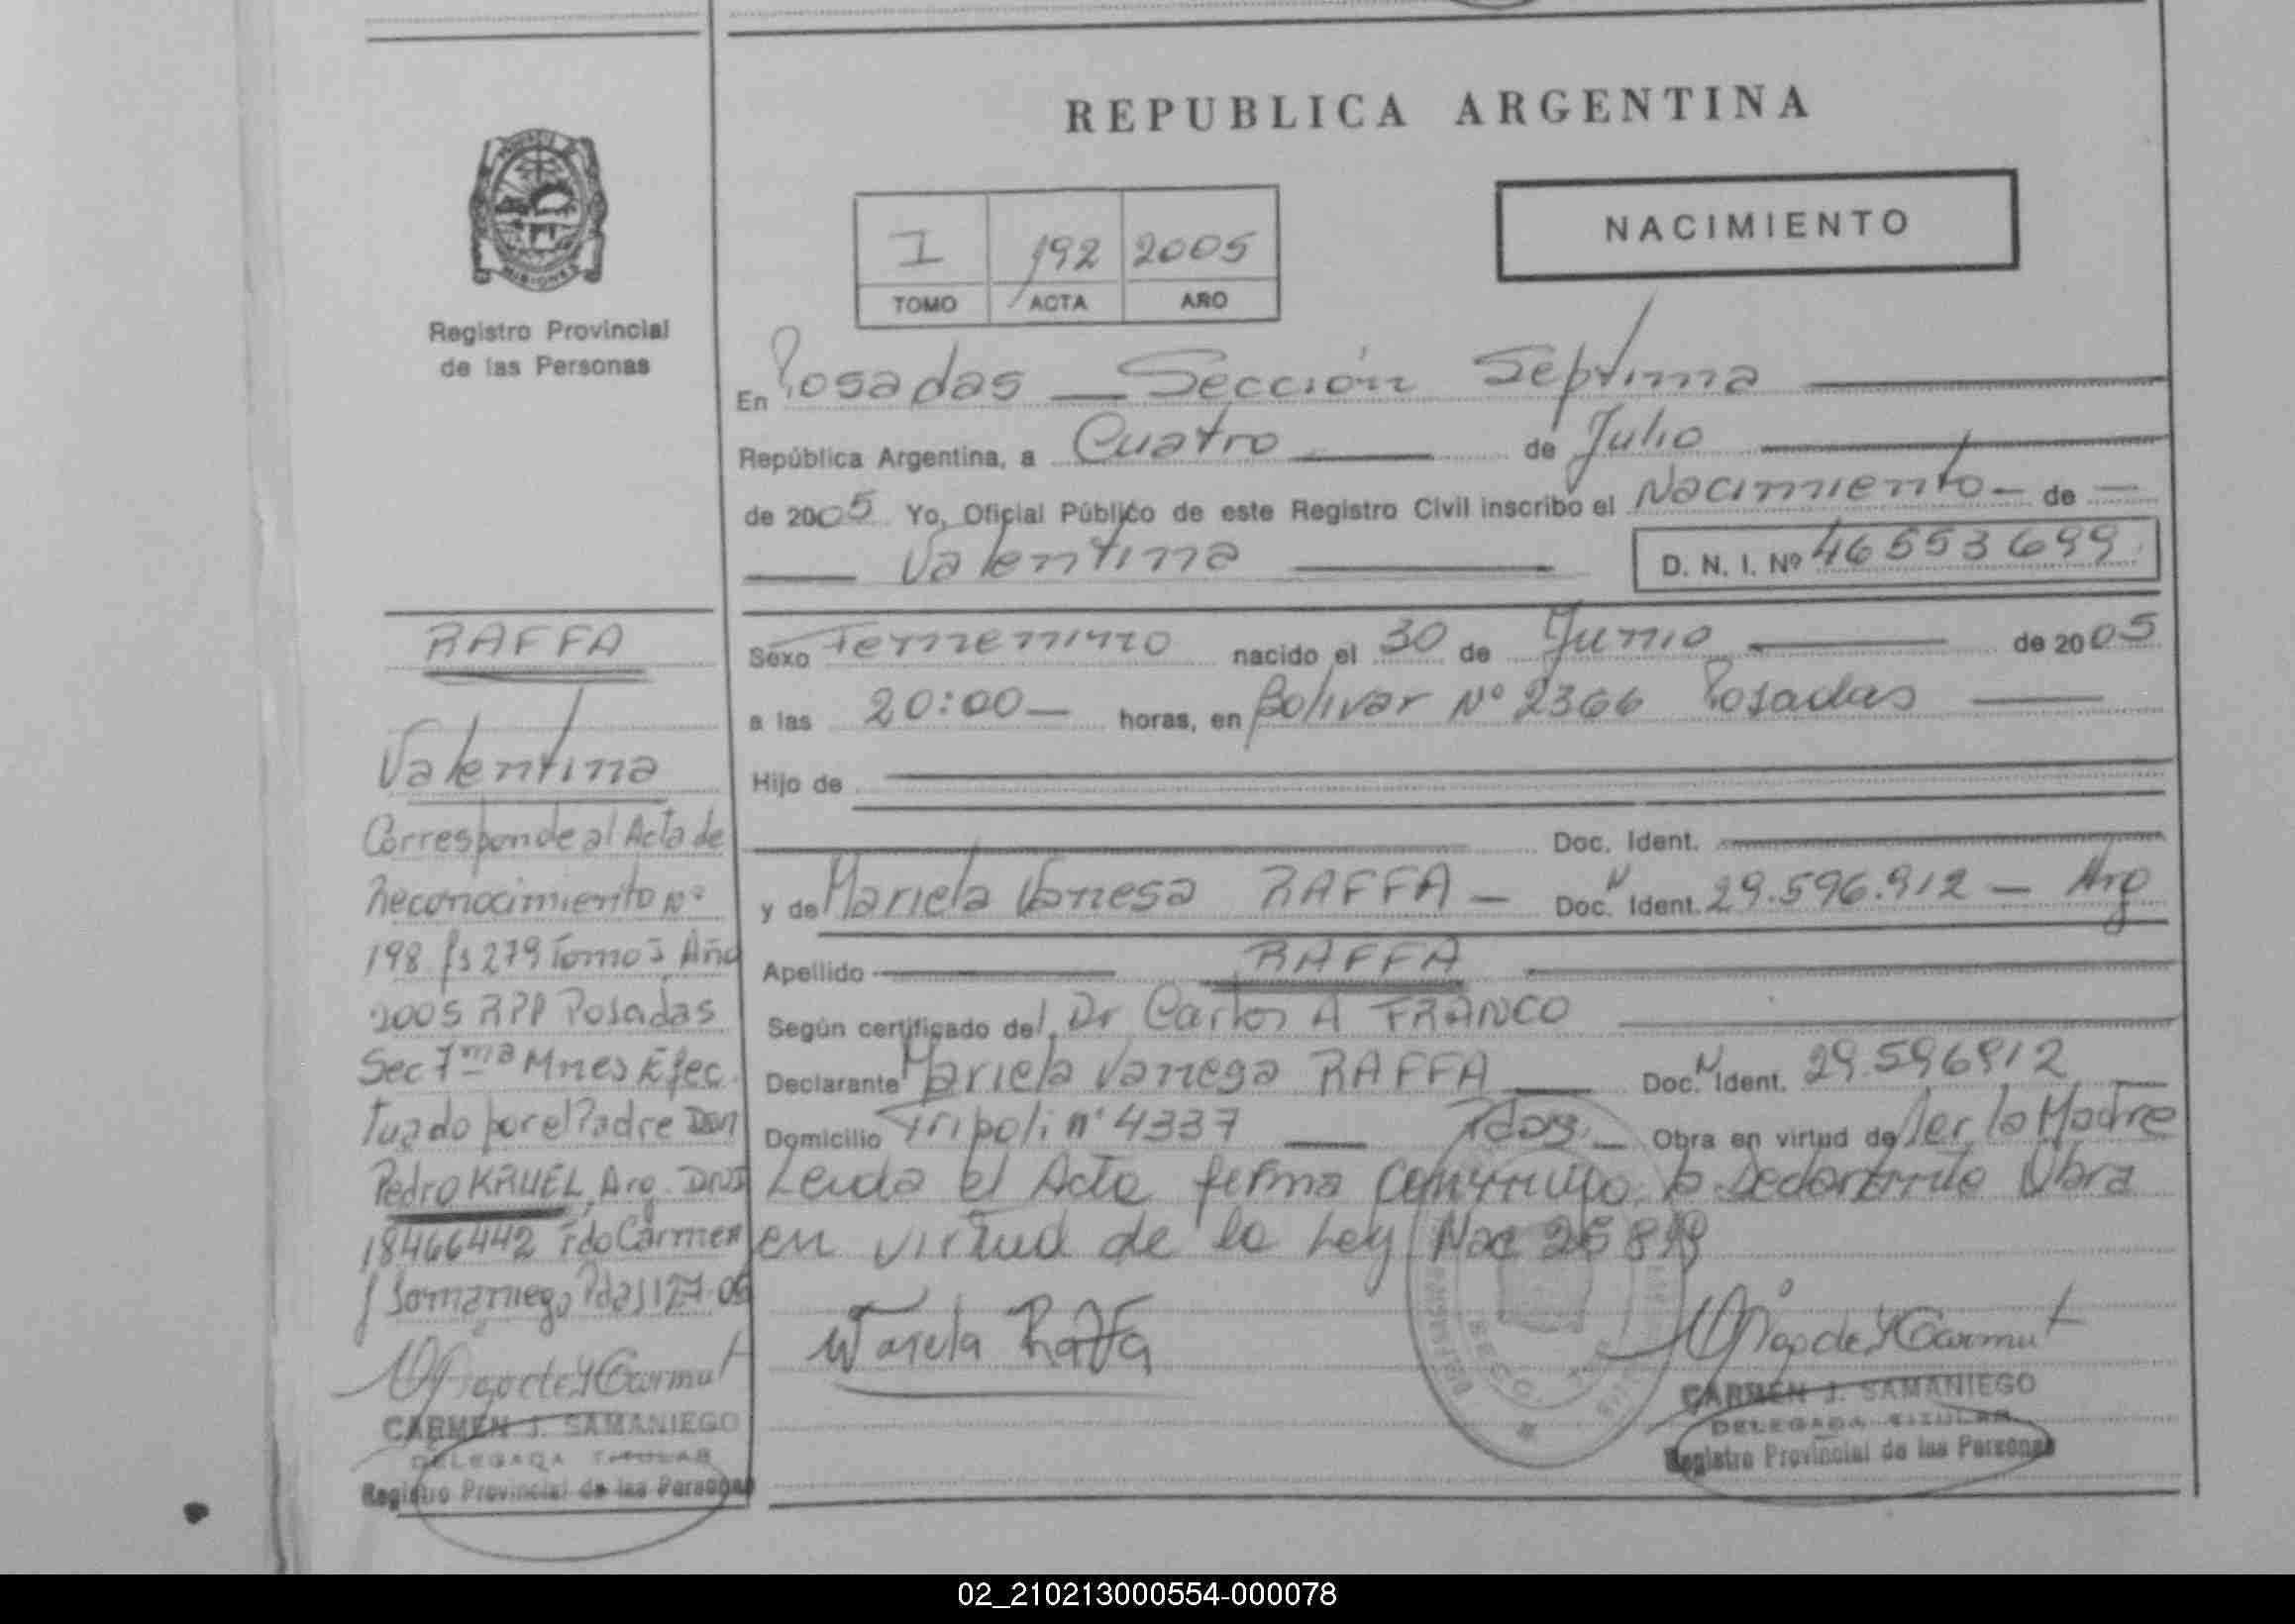 REPUBLICA ARGENTINA
NACIMIENTO
I 192 2005
TOMO ACTA AÑO
PROVINCIA DE
MISIONES
Registro Provincial
de las Personas
En Posadas — Sección Septima
República Argentina, a Cuatro de Julio
de 2005 Yo, Oficial Público de este Registro Civil inscribo el Nacimiento - de —
Valentina D. N. I. Nº 46553699
Sexo Femenino nacido el 30 de Junio de 2005
a las 20:00 — horas, en Bolivar Nº 2366 Posadas
Hijo de
Doc. Ident.
y de Mariela Vanesa RAFFA — Doc. N Ident. 29.596.912 — Arg
Apellido RAFFA
Según certificado del Dr Carlos A FRANCO
Declarante Mariela Vanesa RAFFA Doc. N Ident. 29.596912
Domicilio Tripoli nº 4337 — Pdas. — Obra en virtud de Ser la Madre
Leida el Acta firma conmigo la Declarante Obra
en virtud de la Ley Nac
Mariela Raffa
CARMEN J. SAMANIEGO
DELEGADA TITULAR
Registro Provincial de las Personas
RAFFA
Valentina
Corresponde al Acta de
Reconocimiento nº
198 fs 279 Tomo Año
2005 RPP Posadas
Sec 7ma Mnes Efec
tuado por el Padre Don
Pedro KRUEL, Arg. DNI
18466442 Fdo Carmen
J Samaniego Pdas
CARMEN J. SAMANIEGO
DELEGADA TITULAR
Registro Provincial de las Personas
02_210213000554-000078